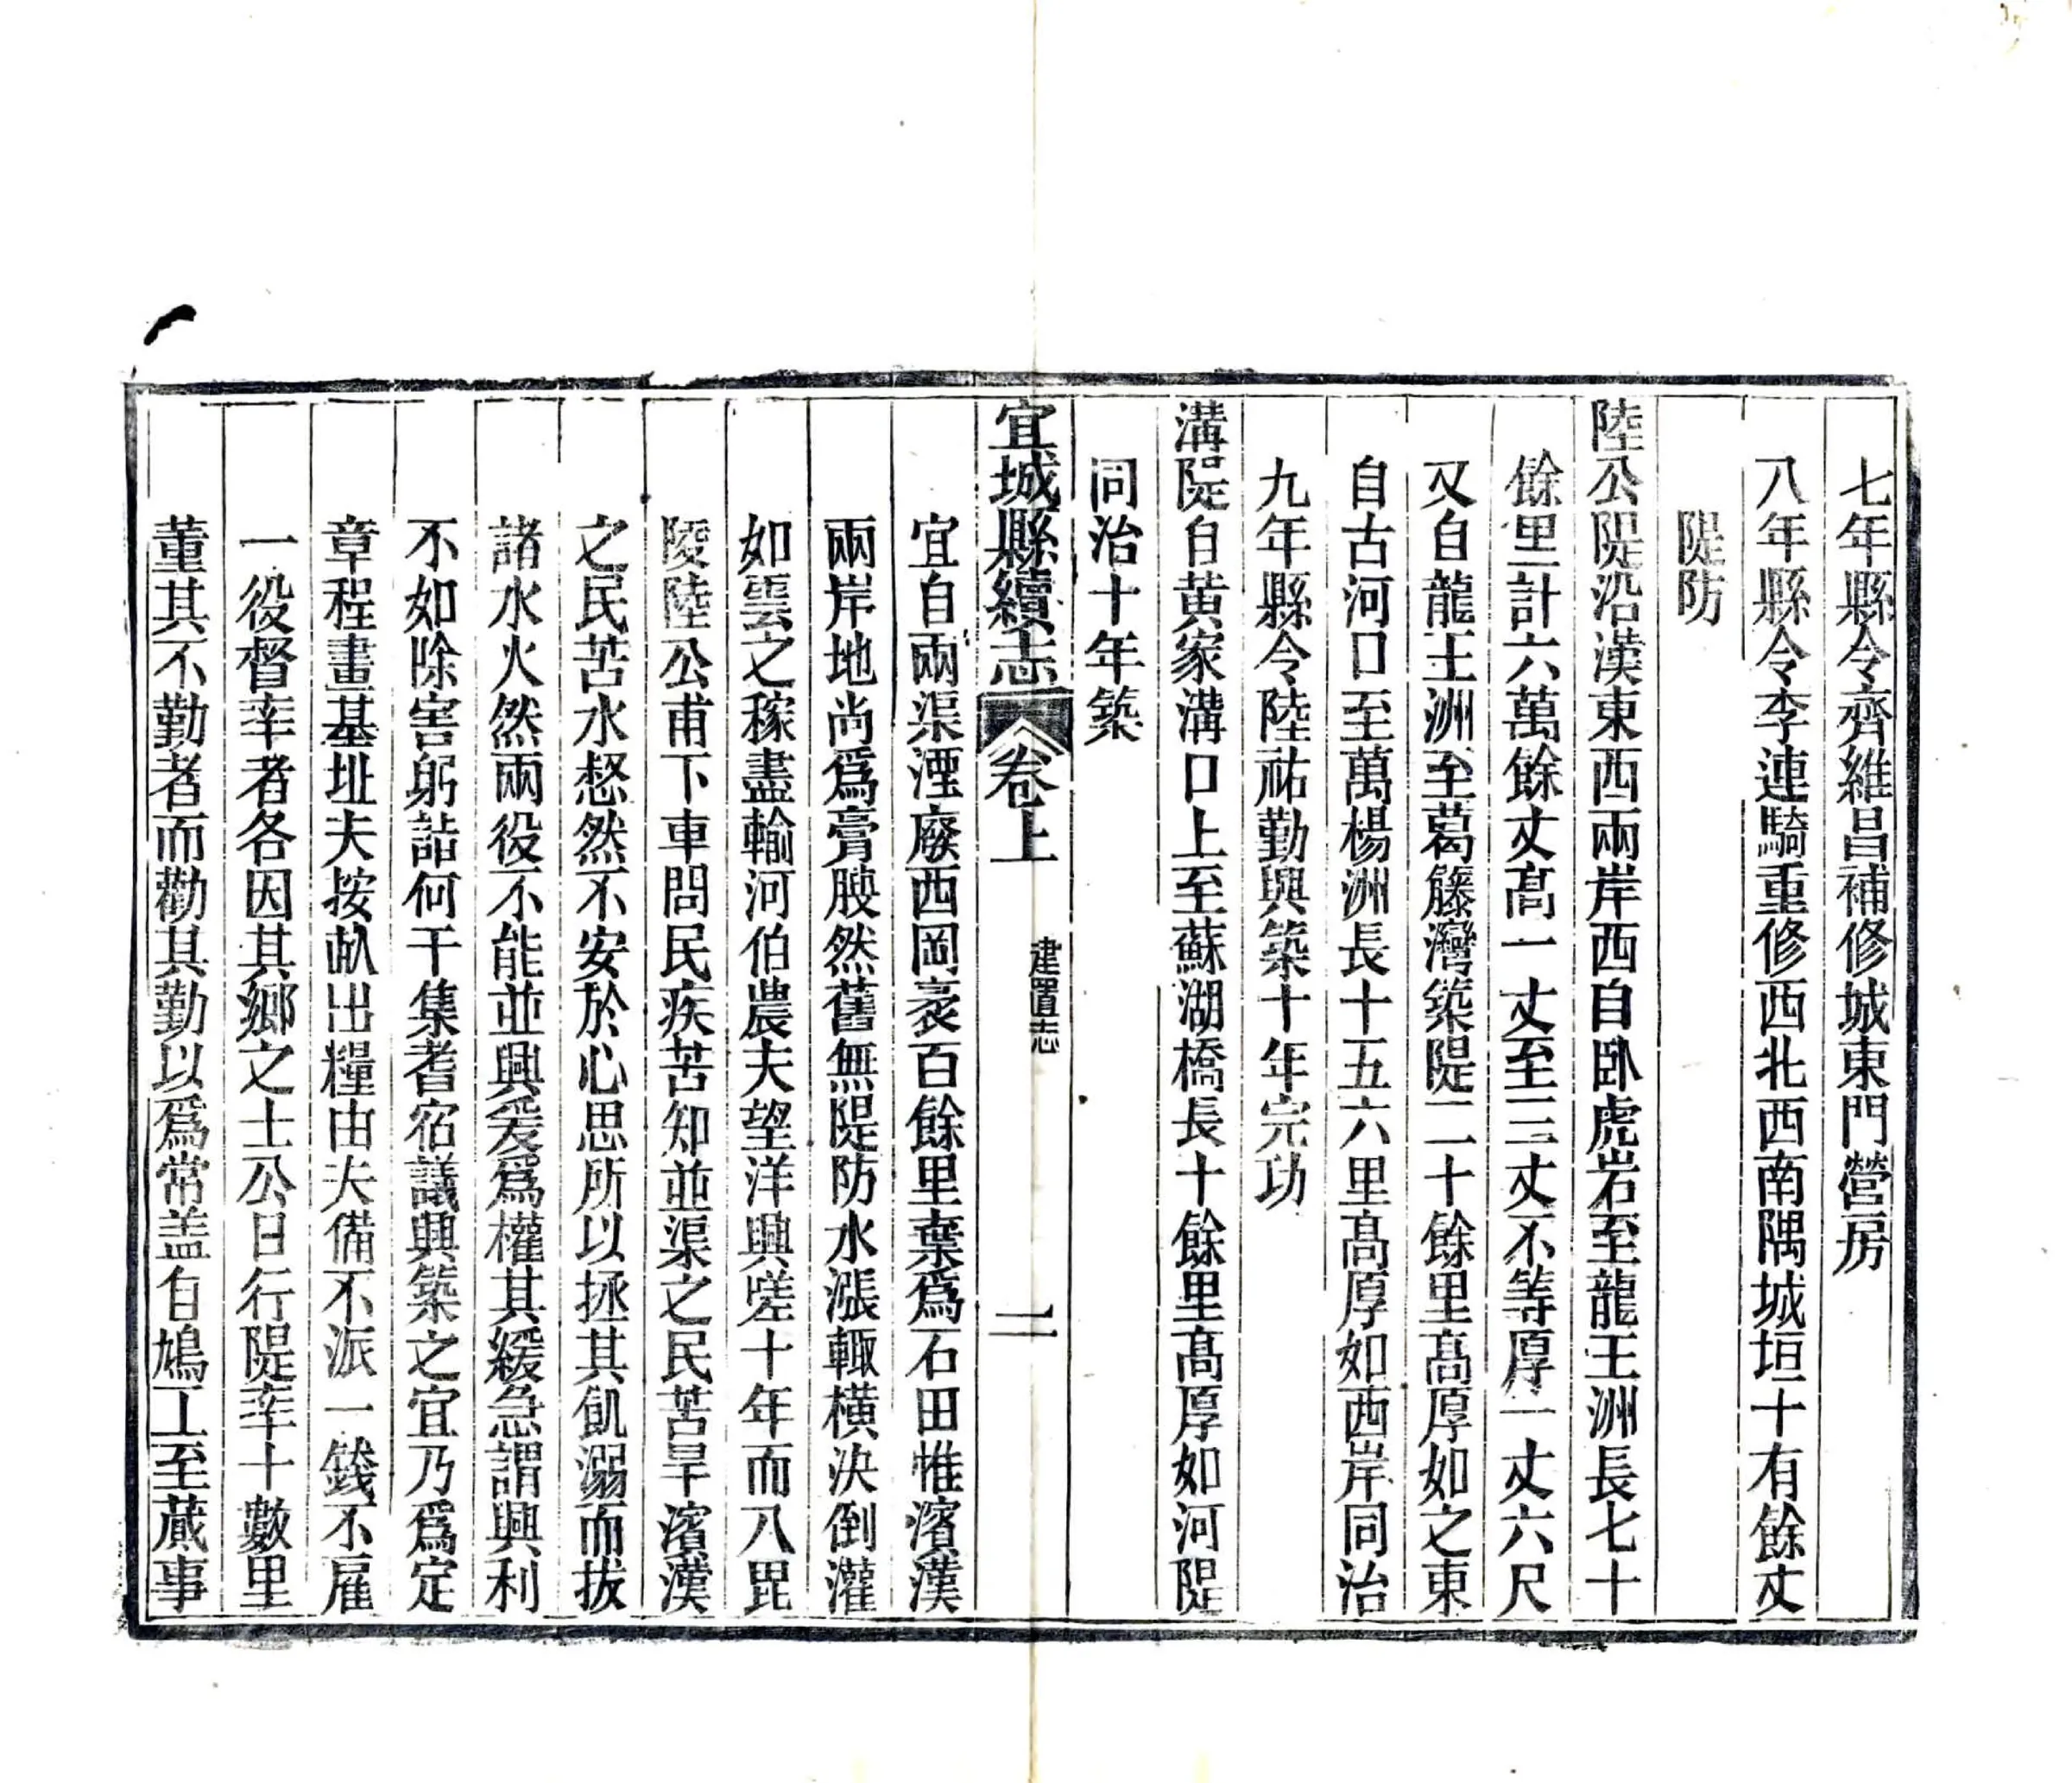 七年縣令齊維昌補修城東門營房
八年縣令李連騎重修西北西南隅城垣十有餘丈
隄防
陸公隄沿漢東西兩岸西自卧虎岩至龍王洲長七十
餘里計六萬餘丈髙一丈至三丈不等厚一丈六尺
又自龍王洲至葛籐灣築隄二十餘里髙厚如之東
自古河口至萬楊洲長十五六里髙厚如西岸同治
九年縣令陸祐勤興築十年完功
溝隄自黄家溝口上至蘇湖橋長十餘里髙厚如河隄
同治十年築
宜城縣續志
卷上
建置志
二
宜自兩渠湮廢西岡袤百餘里棄爲石田惟濱漢
兩岸地尚爲膏腴然舊無隄防水漲輙橫決倒灌
如雲之稼盡輸河伯農夫望洋興嗟十年而八毘
陵陸公甫下車問民疾苦知並渠之民苦旱濱漢
之民苦水惄然不安於心思所以拯其飢溺而拔
諸水火然兩役不能並興爰爲權其緩急謂興利
不如除害躬詣何干集耆宿議興築之宜乃爲定
章程畫基址夫按畝出糧由夫備不派一錢不雇
一役督率者各因其鄉之士公日行隄率十數里
董其不勤者而勸其勤以爲常盖自鳩工至蕆事